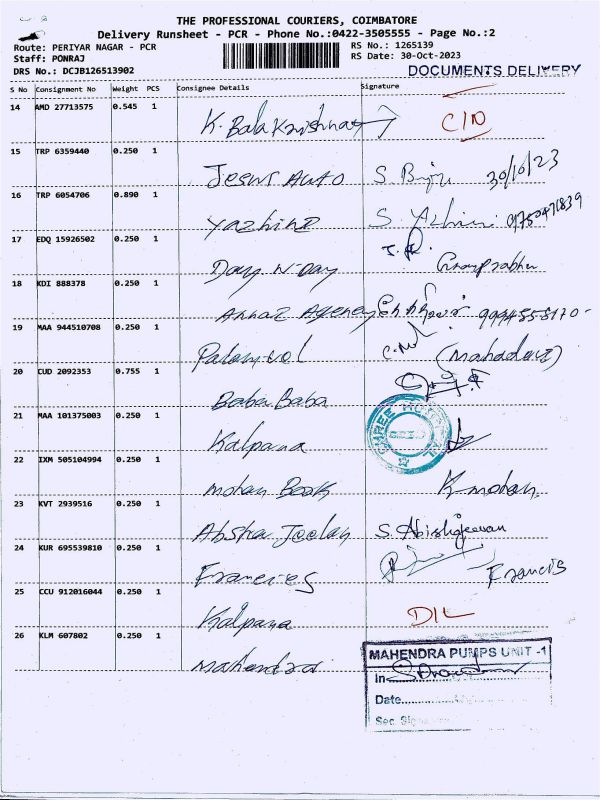 THE PROFESSIONAL COURIERS, COIMBATORE
Delivery Runsheet - PCR - Phone No.:0422-3505555 - Page No.:2
Route: PERIYAR NAGAR - PCR
RS No.: 1265139
Staff: PONRAJ
RS Date: 30-Oct-2023
DRS No.: DCJB126513902
DOCUMENTS DELIVERY
S No Consignment No Weight PCS Consignee Details Signature
14 AMD 27713575 0.545 1
K. Balakrishnan
15 TRP 6359440 0.250 1
Jesus Auto S. 30/10/23
16 TRP 6054706 0.890 1
Yazhini S. Yazhini
17 EDQ 15926502 0.250 1
Day N-Day
18 KDI 888378 0.250 1
Agency
19 MAA 944510708 0.250 1
20 CUD 2092353 0.755 1
Baba Baba
21 MAA 101375003 0.250 1
SHREE HOSPITAL
Kalpana
22 IXM 505104994 0.250 1
Mohan Book K mohan
23 KVT 2939516 0.250 1
24 KUR 695539810 0.250 1
Francies Francis
25 CCU 912016044 0.250 1
Kalpana
26 KLM 607802 0.250 1
Mahendra
MAHENDRA PUMPS UNIT -1
In
Date